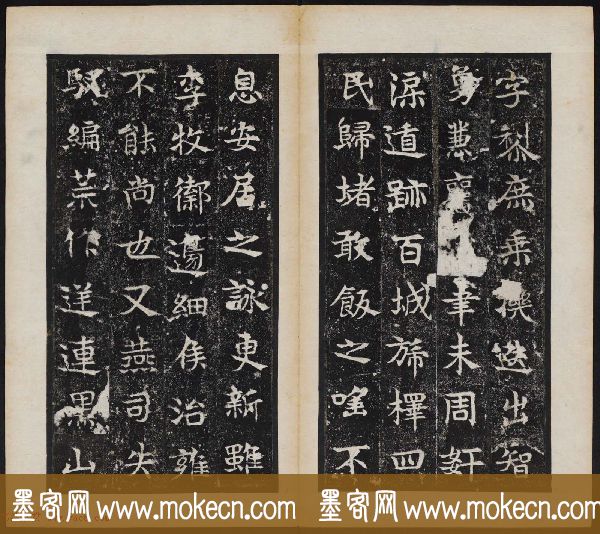 字黎庶乘機迭出智
勇兼聿未周奸
深遁跡百城斾檡四
民歸堵敢飯之嗟不
息安居之詠更新雖
李牧禦邊細侯治雍
不能尚也又燕司失
馭編菜作逆連黑山
墨客网 www.mokecn.com 墨客网 www.mokecn.com